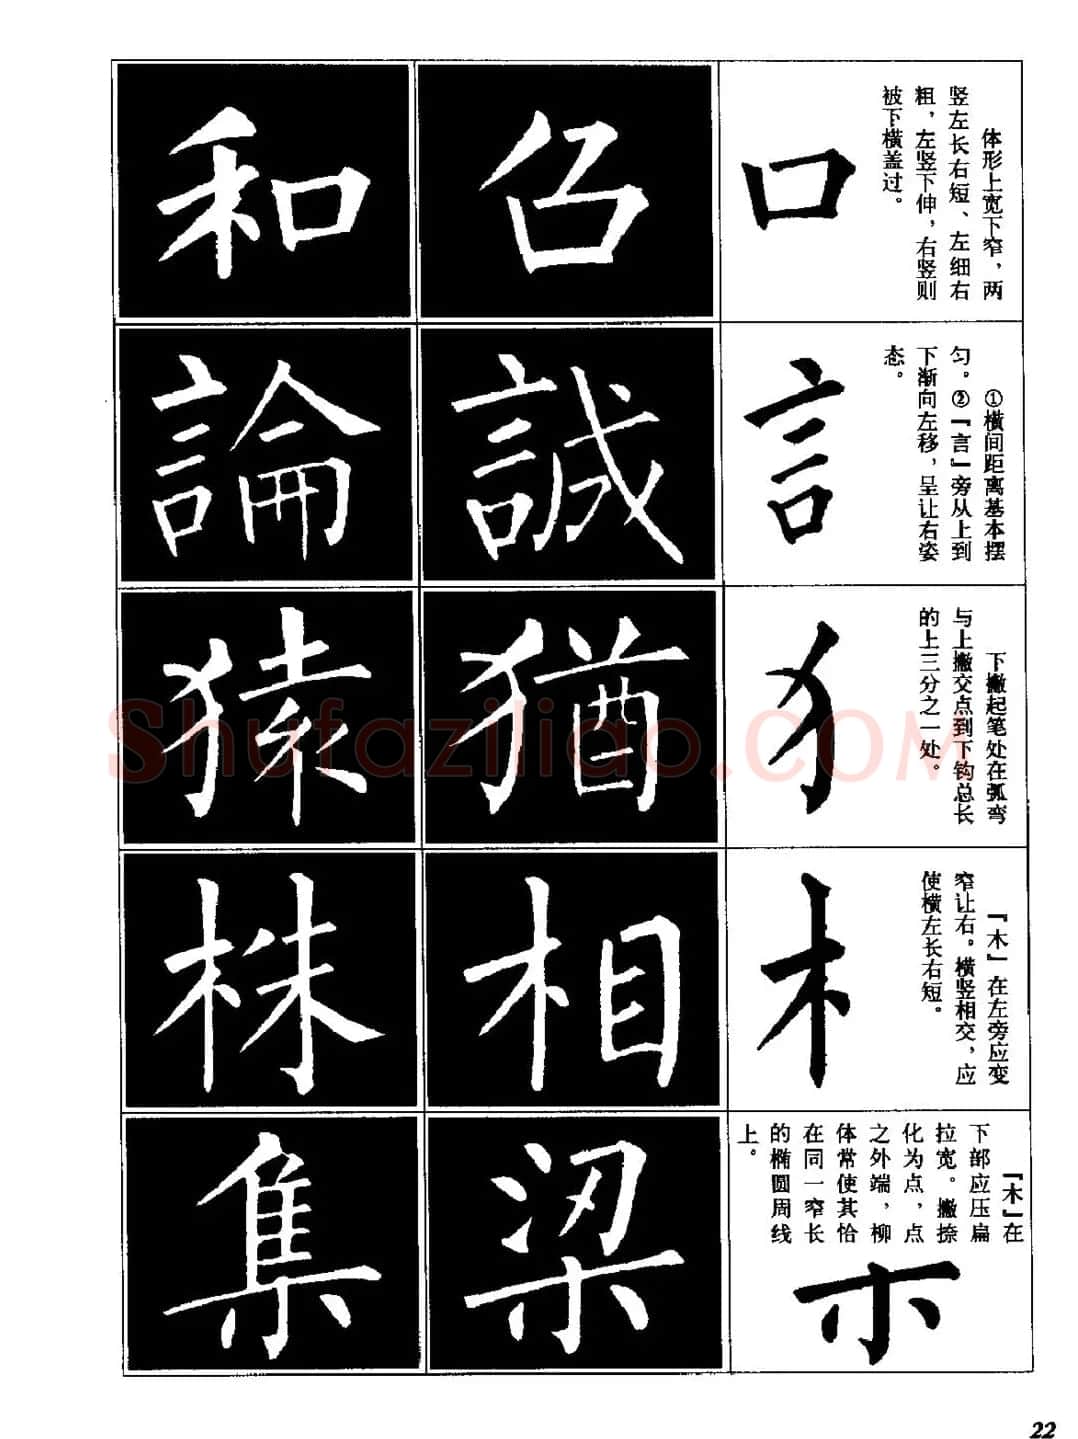 体形上宽下窄，两
竖左长右短、左细右
粗，左竖下伸，右竖则
被下横盖过。
口
召
和
①横间距离基本摆
匀。②「言」旁从上到
下渐向左移，呈让右姿
态。
言
誠
論
下撇起笔处在弧弯
与上撇交点到下钩总长
的上三分之一处。
犭
猶
猿
「木」在左旁应变
窄让右。横竖相交，应
使横左长右短。
木
相
株
「木」在
下部应压扁
拉宽。撇捺
化为点，点
之外端，柳
体常使其恰
在同一窄长
的椭圆周线
上。
木
梁
集
Shufaziliao.COM
22